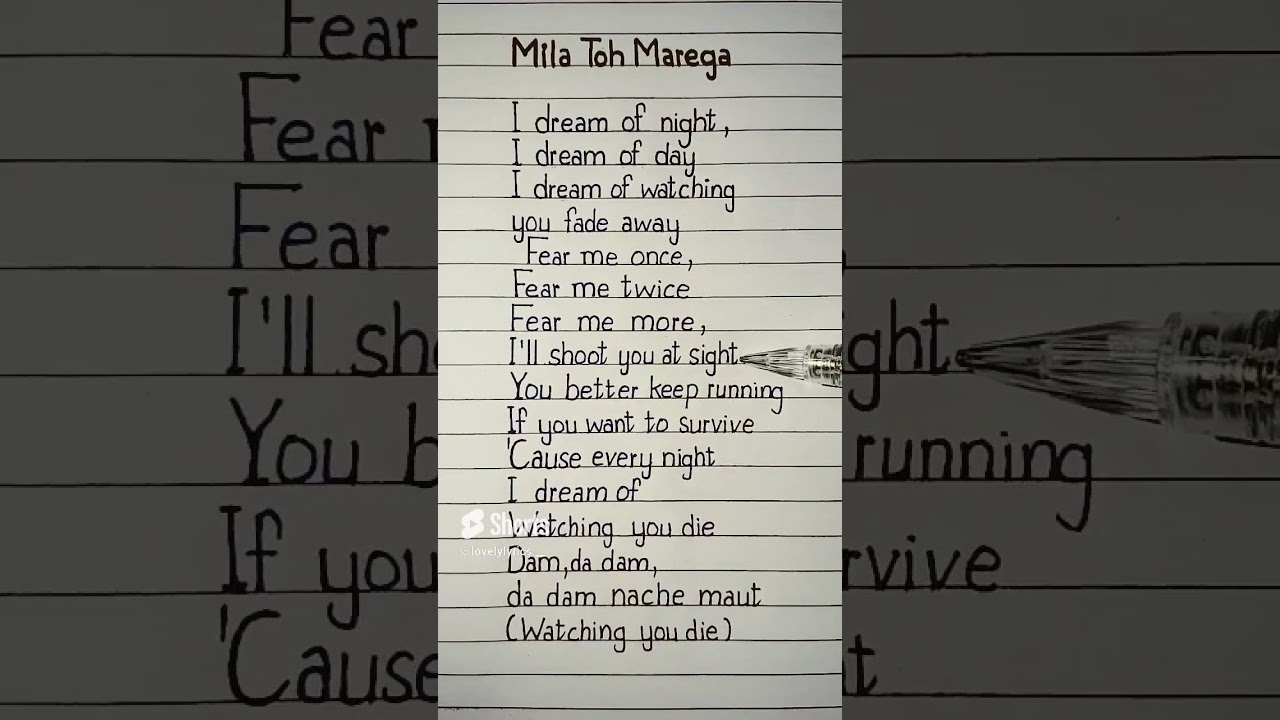 Mila Toh Marega
I dream of night,
I dream of day
I dream of watching
you fade away
Fear me once,
Fear me twice
Fear me more,
I'll shoot you at sight
You better keep running
If you want to survive
'Cause every night
I dream of
Watching you die
Dam,da dam,
da dam nache maut
(Watching you die)
Shorts
@lovelylyrics
Fear
Fear
Fear
I'll sh
ight
You b
running
If you
rvive
'Cause
t